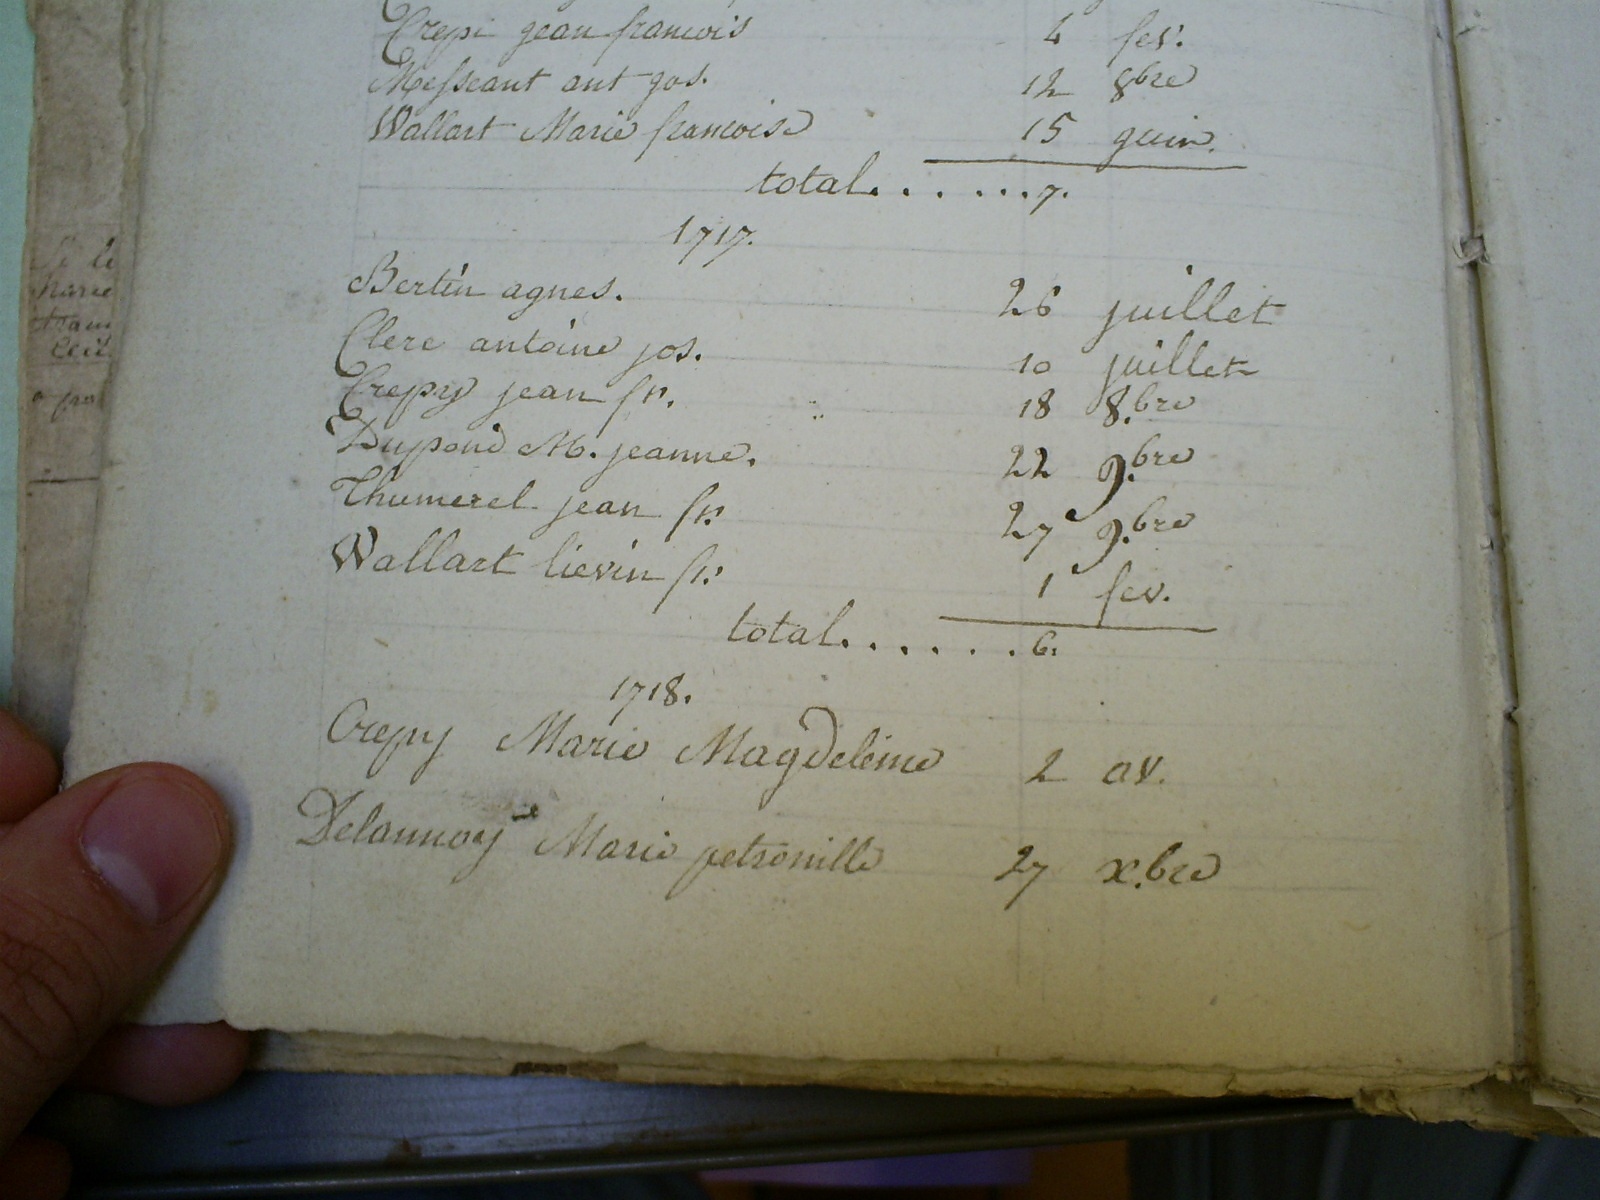 Crepi jean francois 4 fev.
Messeant ant jos. 12 8bre
Wallart Marie francoise 15 juin.
total. . . . . . . 7.
1717.
Bertin agnes. 26 juillet
Clerc antoine jos. 10 juillet
Crepy jean fr. 18 8.bre
Dupond M. jeanne. 22 9.bre
Thumerel jean fr. 27 9.bre
Wallart lievin fr. 1 fev.
total. . . . . . . 6.
1718.
Crepy Marie Magdeleine 2 av.
Delannoy Marie petronille 27 x.bre